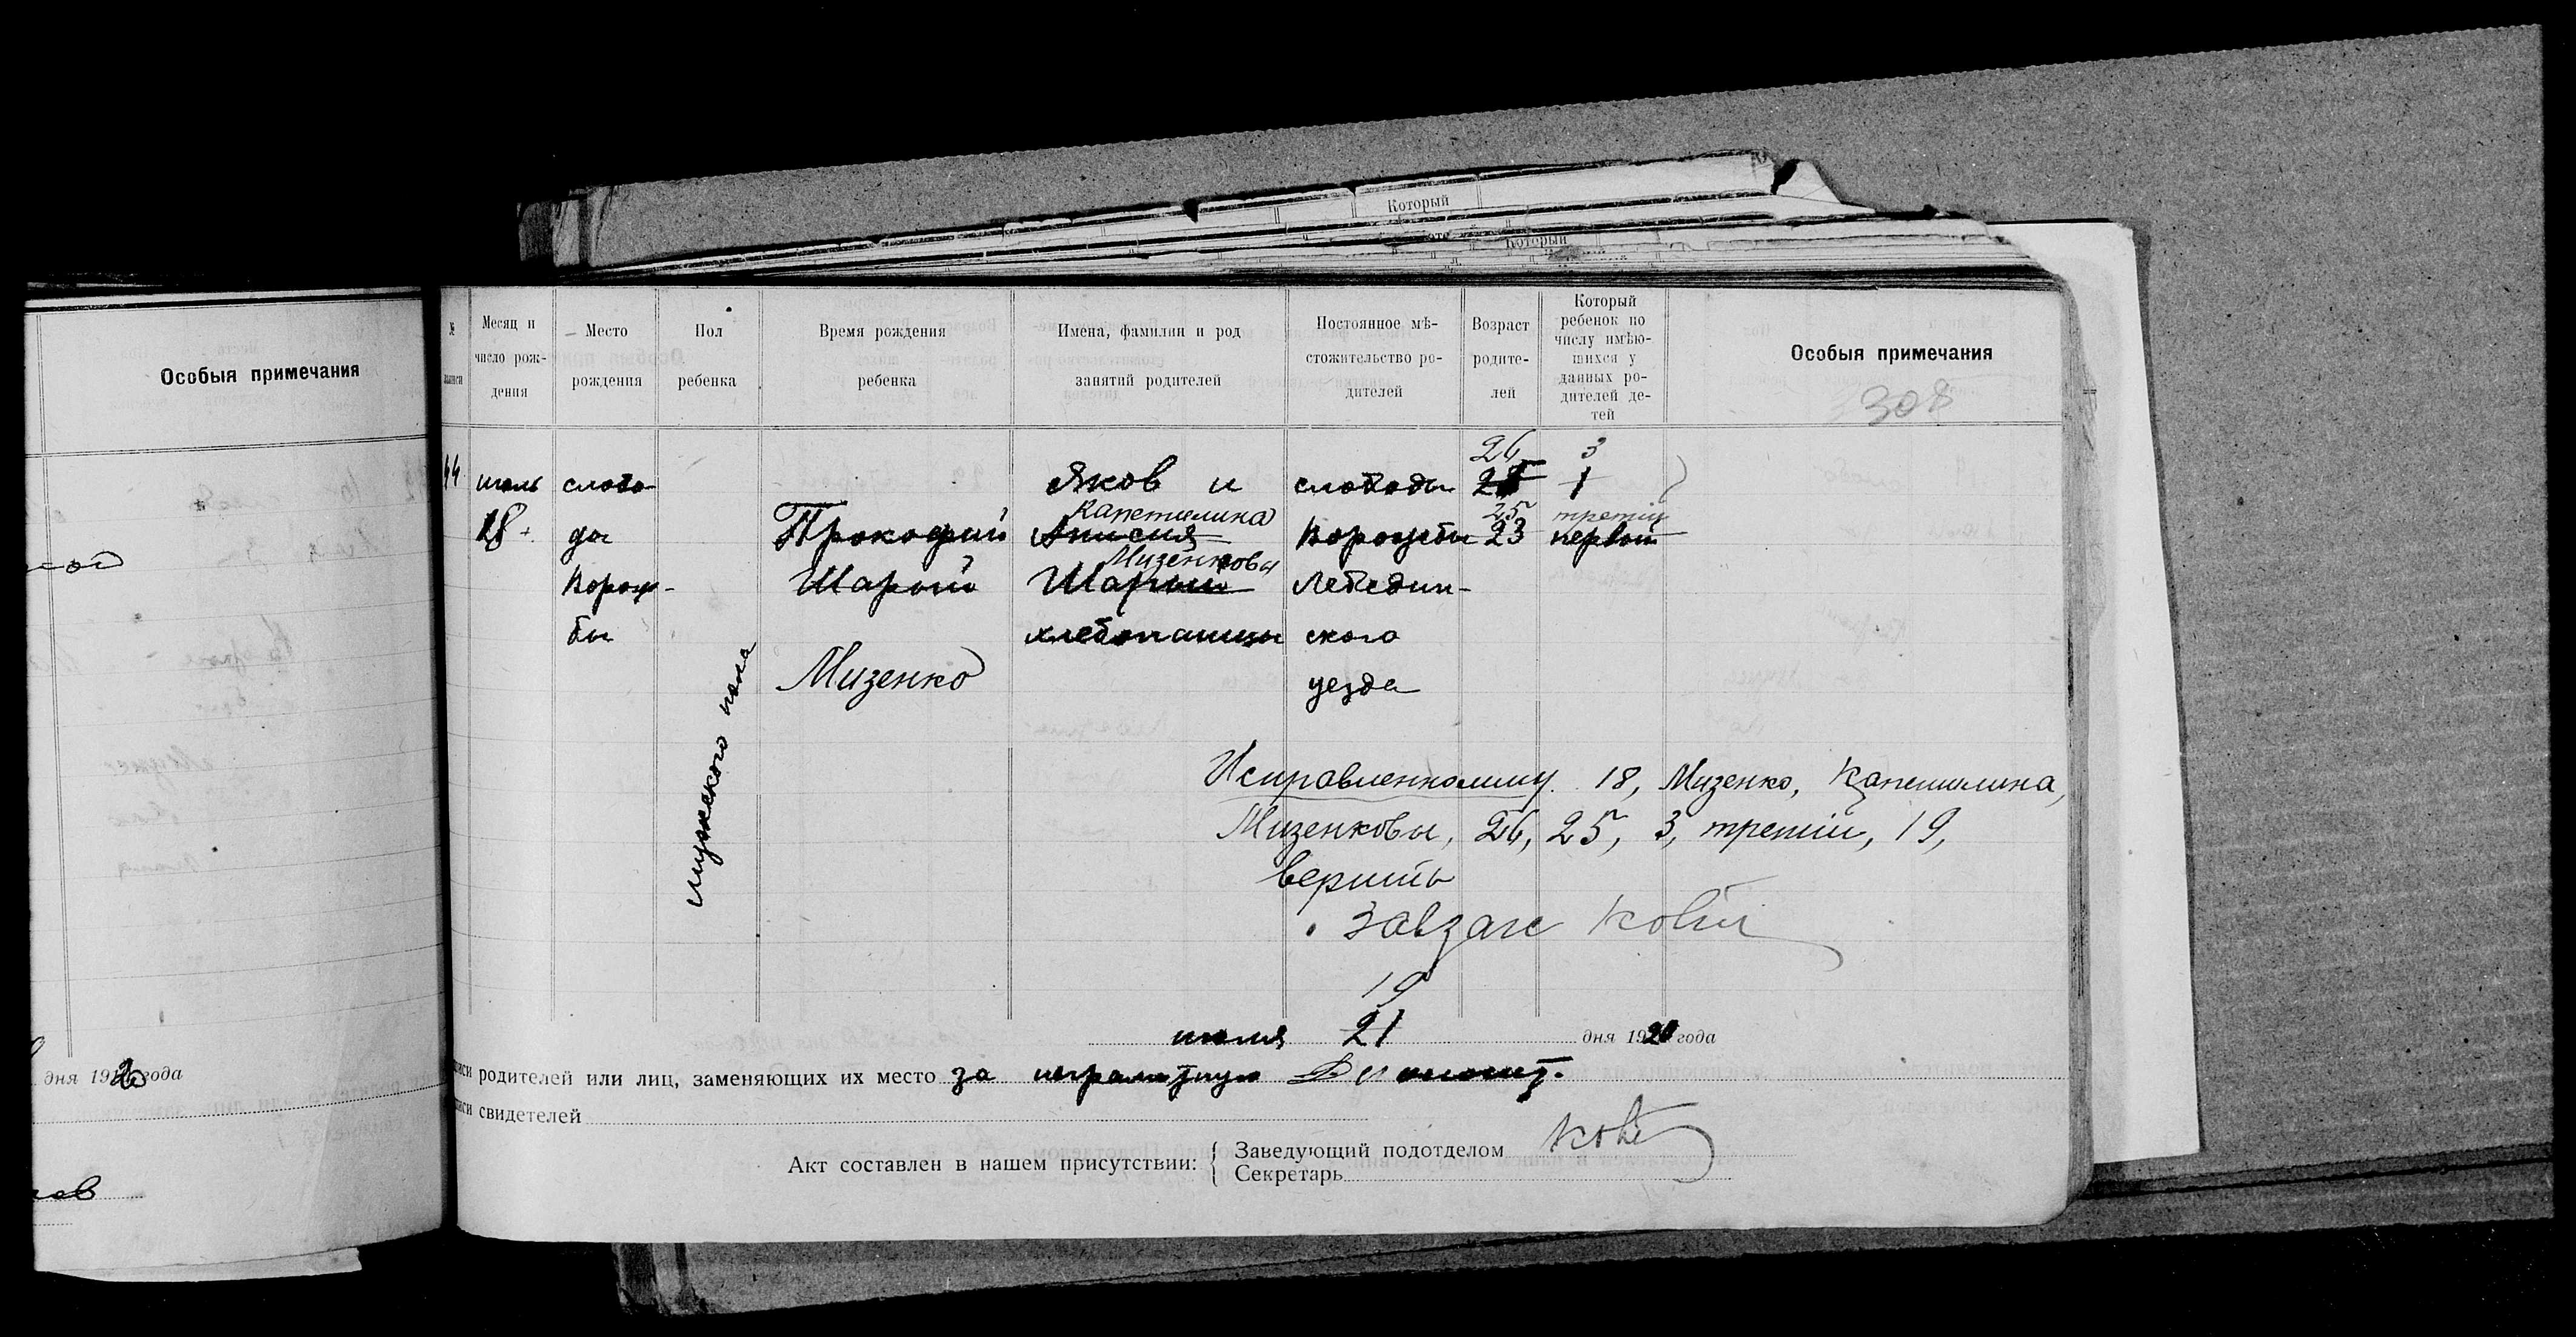 Который
Который
Особыя примечания
№
Месяц и число рождения
Место рождения
Пол ребенка
Время рождения ребенка
Имена, фамилии и род занятий родителей
Постоянное мѣстожительство родителей
Возраст родителей
Который ребенок по числу имѣющихся у данных родителей детей
Особыя примечания
308
44
июль
18
слобо-
да
Ворож-
бы
мужеского пола
Прокофий
Шарый
Мизенко
Яков и
Капетилина
Анисия
Мизенковы
Шарые
хлебопашцы
слободы
Ворожбы
Лебедин-
ского
уезда
26
25
25
23
3
1
третий
первый
Исправленному 18, Мизенко, Капетилина,
Мизенковы, 26, 25, 3, третий, 19,
верить
Завзагс
19
июля 21 дня 1920 года
родителей или лиц, заменяющих их место за неграмотную
свидетелей
Акт составлен в нашем присутствии:
Заведующий подотделом
Секретарь
дня 1920 года